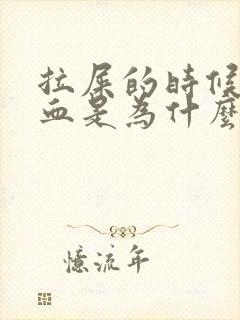 拉屎的時候
血是為什麼
憶流年